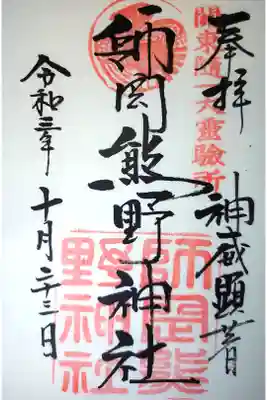 奉拝
神威顕著
関東随一大霊験所
師岡熊野神社
師岡熊
野神社
令和三年
十月二十三日